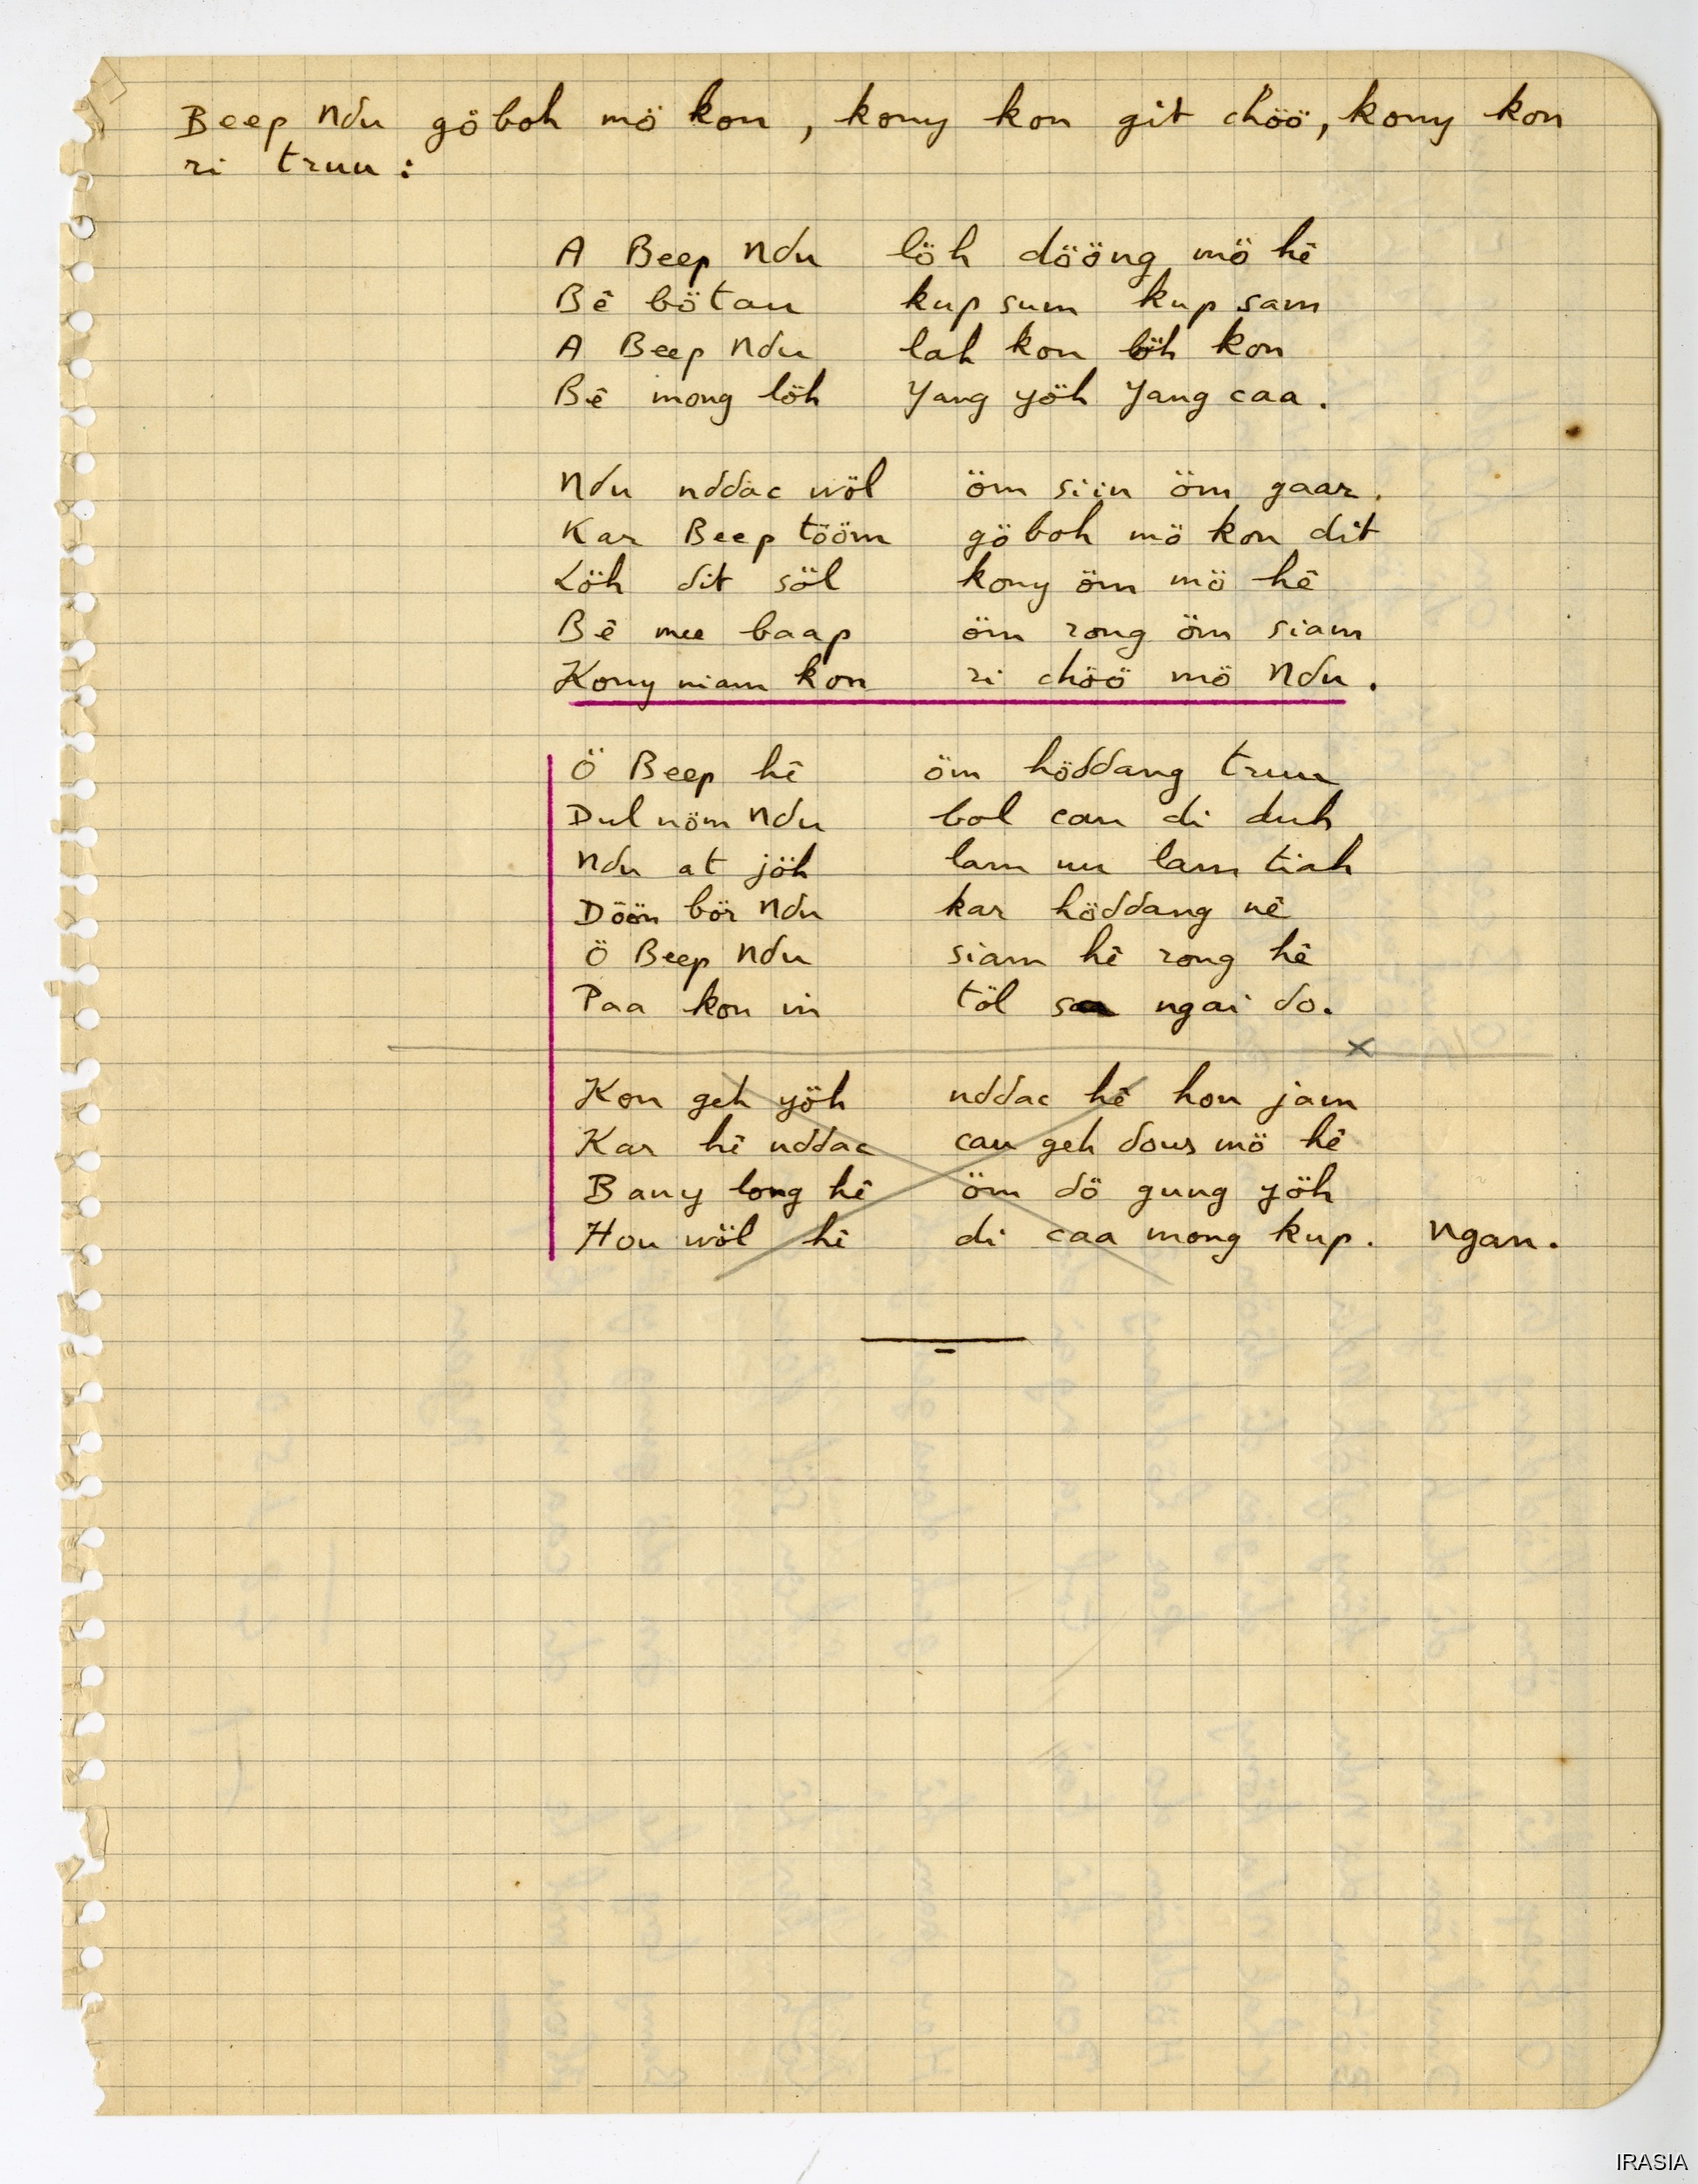 Beep Ndu göboh mö kon, kony kon git chöö, kony kon
ri truu :
A Beep Ndu löh dööng mö hê
Bê bötau kup sum kup sam
A Beep Ndu lah kon löh kon
Bê mong löh Yang yöh Yang caa.
Ndu nddac wöl öm siin öm gaar.
Kar Beep tööm göboh mö kon dit
Löh dit söl kony öm mö hê
Bê mee baap öm rong öm siam
Kony niam kon ri chöö mö Ndu.
Ö Beep hê öm höddang truu
Dul nöm Ndu bol cau di duh
Ndu at jöh lam uu lam tiah
Döön bör Ndu kar höddang nê
Ö Beep Ndu siam hê rong hê
Paa kon in töl ngai do.
Kon geh yöh nddac hê hou jam
Kar hê nddac cau geh dous mö hê
Bany long hê öm dö gung yöh
Hou wöl hê di caa mong kup. Ngan.
IRASIA